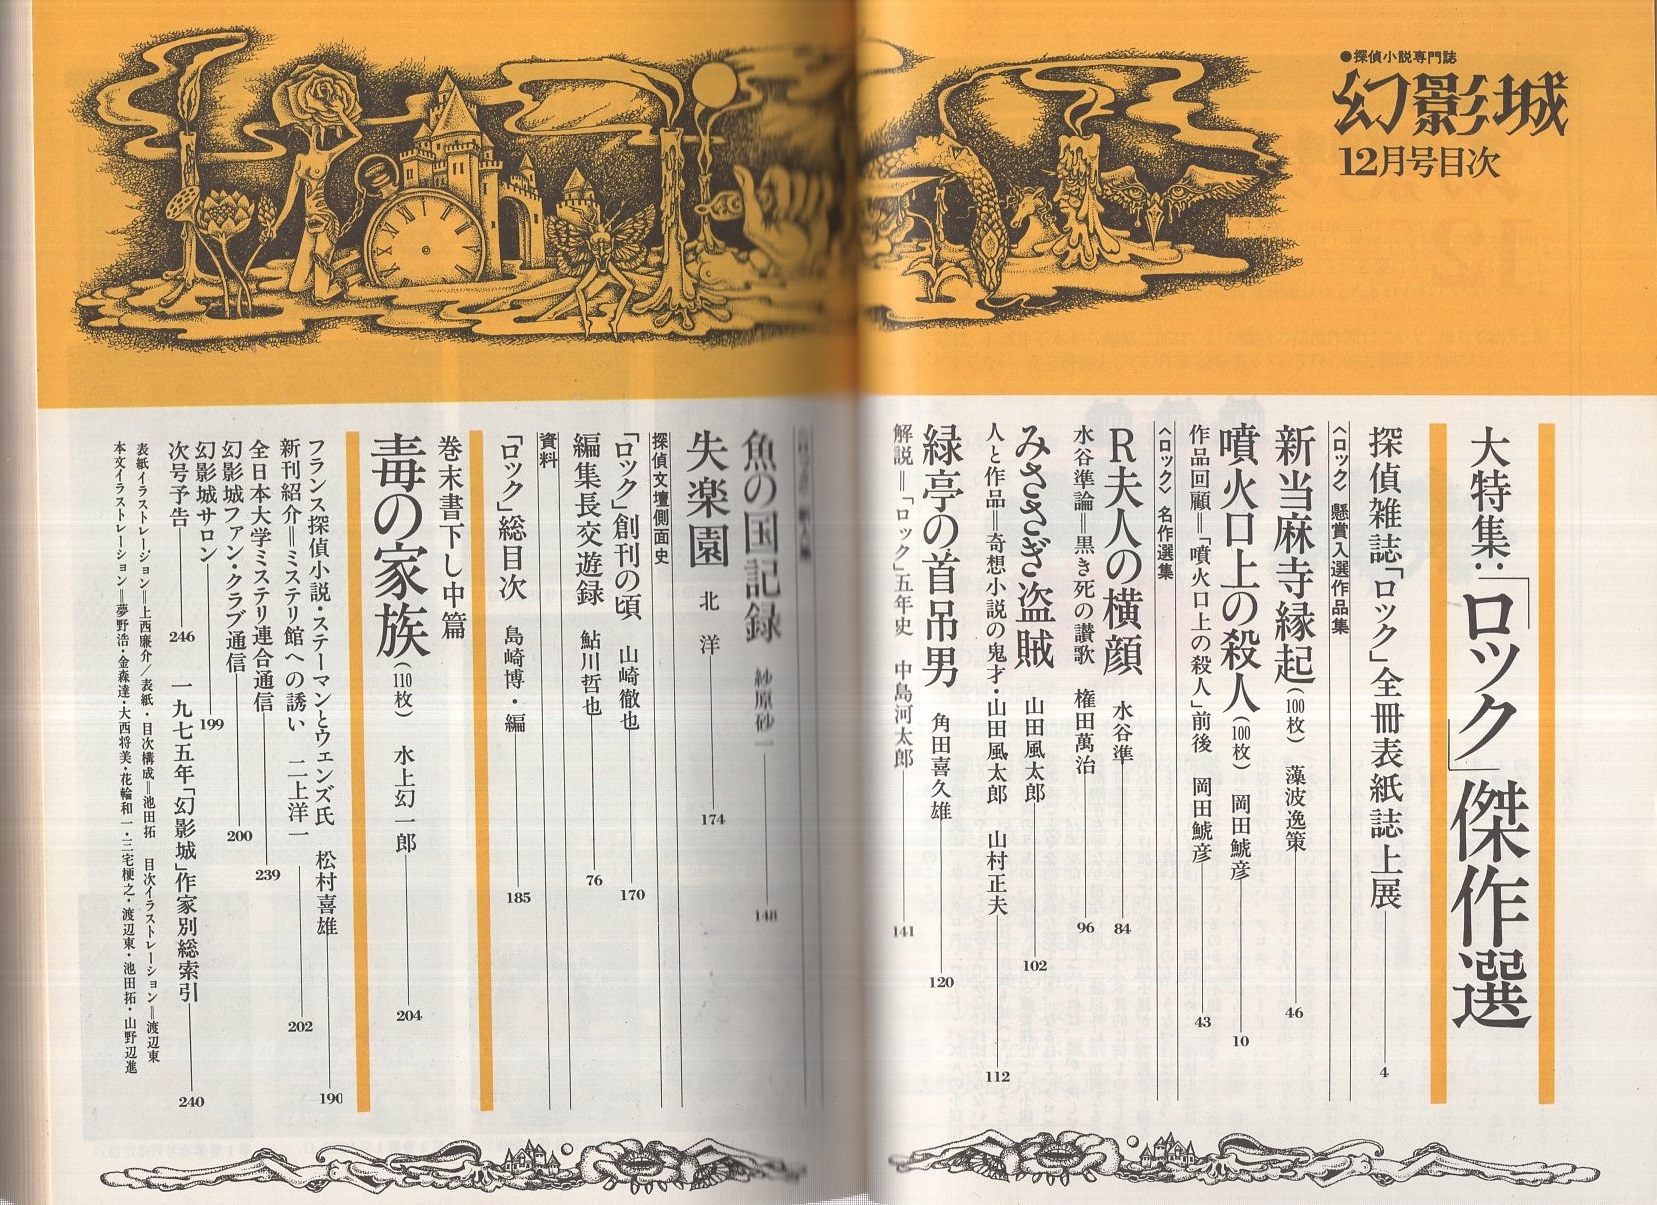 ●探偵小説専門誌
幻影城
12月号目次
大特集:「ロック」傑作選
探偵雑誌「ロック」全冊表紙誌上展 4
〈ロック〉懸賞入選作品集
新当麻寺縁起(100枚) 藻波逸策 46
噴火口上の殺人(100枚) 岡田鯱彦 10
作品回顧=「噴火口上の殺人」前後 岡田鯱彦 43
〈ロック〉名作選集
R夫人の横顔 水谷準 84
水谷準論=黒き死の讃歌 権田萬治 96
みささぎ盗賊 山田風太郎 102
人と作品=奇想小説の鬼才・山田風太郎 山村正夫 112
緑亭の首吊男 角田喜久雄 120
解説=「ロック」五年史 中島河太郎 141
魚の国記録 紗原砂一 148
失楽園 北洋 174
探偵文壇側面史
「ロック」創刊の頃 山崎徹也 170
編集長交遊録 鮎川哲也 76
資料
「ロック」総目次 島崎博・編 185
巻末書下し中篇
毒の家族(110枚) 水上幻一郎 204
フランス探偵小説・ステーマンとウェンズ氏 松村喜雄 190
新刊紹介=ミステリ館への誘い 二上洋一 202
全日本大学ミステリ連合通信 239
幻影城ファン・クラブ通信 200
幻影城サロン 199
次号予告 246 一九七五年「幻影城」作家別総索引 240
表紙イラストレーション=上西廉介/表紙・目次構成=池田拓 目次イラストレーション=渡辺東
本文イラストレーション=夢野浩・金森達・大西将美・花輪和一・三宅梗之・渡辺東・池田拓・山野辺進